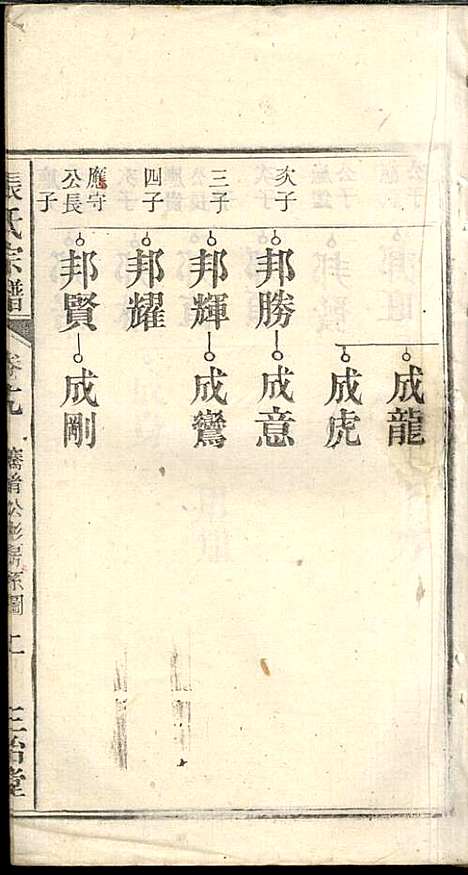 成龍
成虎
次子
邦勝
成意
三子
邦輝
成鸞
四子
邦耀
應守公長子
邦賢
成剛
張氏宗譜
卷之九
三治堂